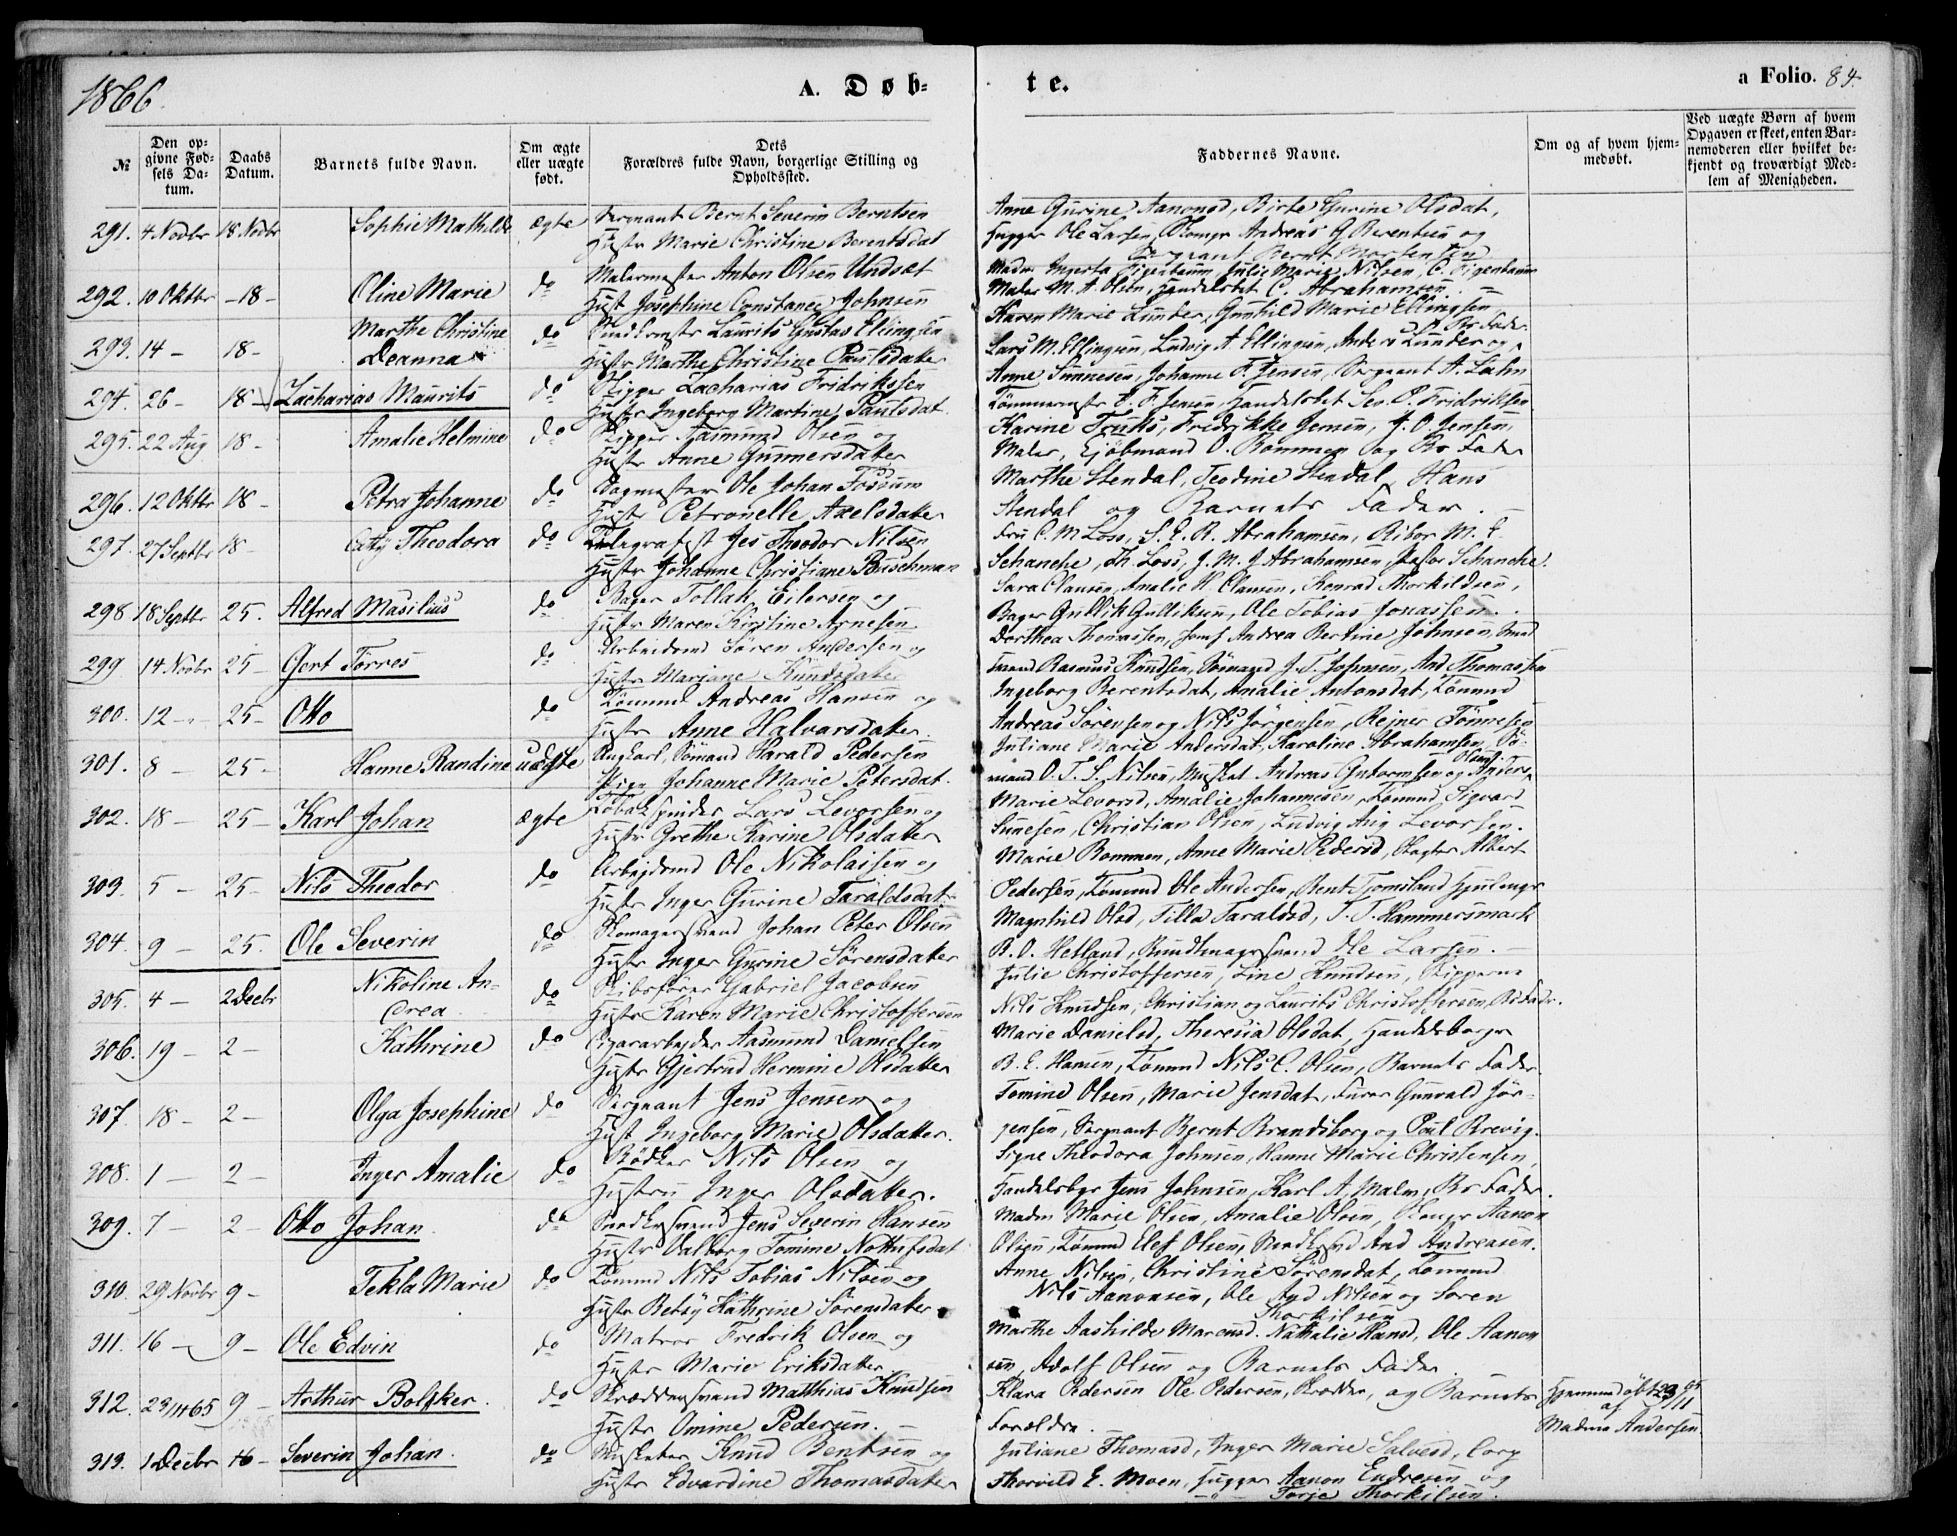 1866.
A. Døb-
te.
a Folio. 84.
№
Den op-
givne Fød-
sels Da-
tum.
Daabs
Datum.
Barnets fulde Navn.
Om ægte
eller uægte
født.
Dets
Forældres fulde Navn, borgerlige Stilling og
Opholdssted.
Faddernes Navne.
Om og af hvem hjem-
medøbt.
Ved uægte Børn af hvem
Opgaven er skeet, enten Bar-
nemoderen eller hvilket be-
kjendt og troværdigt Med-
lem af Menigheden.
291. 4 Novbr 18 Novbr Sophie Mathilde ægte Sergeant Bernt Severin Berntsen
Hustr Marie Christine Berentsdat
Anne Gurine Aanonsd, Birte Gurine Olsdat,
Ole Larsen, Andreas G. Berentsen og
Sergeant Bernt Mortensen
292. 10 Oktbr - 18 - Oline Marie do Malermester Anton Olsen Undsæt
Hust Josephine Constance Johnsen
Madm Julie Marie Nilsen, C. Sigenbaum
Maler M. A. Olsen, Handelsbet C. Abrahamsen. -
293. 14 - 18 - Marthe Christine
Deanna do Laurits Gustav Ellingsen
Hustr Marthe Christine Paulsdatter
Karen Marie Lunder, Gunhild Marie Ellingsen
Lars M. Ellingsen, Ludvig A Ellingsen, Anders Lunder og Bs Fader
294. 26 - 18 - Zacharias Maurits do Skipper Zacharias Fridriksen
Hustr Ingeborg Martine Paulsdat
Anne Sunnesen, Johanne F. Jensen, Sergeant A. Lahn
Tømmermstr E. F. Jensen, Handelsbet Sev. P. Fridriksen
295. 22 Aug 18 - Amalie Helmine do Skipper Aasmund Olsen og
Hustr Anne Gunnersdatter
Karine Fredrikke Jensen, J. O. Jensen,
Maler, Kjøbmand O. Rommen og Bs Fader
296. 12 Oktbr 18 - Petra Johanne do Bagmester Ole Johan Fossum
Hustr Petronelle Axelsdatter
Marthe Stendal, Teodine Stendal, Hans
Stendal og Barnets Fader. -
297. 27 Septbr 18 - Theodora do Telegrafist Jes Theodor Nilsen
Hustr Johanne Christiane Buschman
Fru C. M Loss, S. E. R. Abrahamsen, Ribor M. E.
Schanche, Th. Loss, J. M. J Abrahamsen, Peder Schanche.
298 18 Septbr 25. Alfred Masilius do Bager Tollak Eilersen og
Hustr Maren Kirstine Arnesen
Sara Clausen, Amalie H. Clausen, Konrad Thorkildsen,
Bager Gullik Gulliksen, Ole Tobias Jonassen.
299 14 Novbr 25 - Gert Torres do Arbeidsmd Søren Andersen og
Hustr Mariane Knudsdatter
Dorthea Thomassen, Jomf Andrea Bertine Johnsen, Smed
svend Rasmus Knudsen, Sømand J. T. Johnsen, And Thomassen
300. 12 - 25 - Otto do Tømmd Andreas Hansen og
Hustr Anne Halvorsdatter
Ingeborg Berentsdat, Amalie Antonsdat, Tømmd
Andreas Sørensen og Nils Jørgensen, Rejner Tønnesen
301. 8 - 25 - Hanne Randine uægte Ungkarl, Sømand Harald Pedersen
Pige Johanne Marie Petersdat.
Juliane Marie Andersdat, Karoline Abrahamsen, Sø-
mand O. T. S. Nilsen, Musket Andreas Guttormsen og Anders Hans
302. 18 - 25 - Karl Johan ægte Tobakspinder Lars Levorsen og
Hustr Grethe Karine Olsdatter
Marie Levorsd, Amalie Johannesen, Tømmd Sigvard
Sunesen, Christian Olsen, Ludvig Aug Levorsen.
303. 5 - 25 - Nils Theodor do Arbejdsmd Ole Nikolaisen og
Hustr Inger Gurine Taraldsdat
Marie Rommen, Anne Marie Pedersd, Slagter Albert
Pedersen, Tømmd Ole Andersen, Bent Tjomsland Hjulmgr
304. 9 - 25. Ole Severin do Skomagersvend Johan Peter Olsen
Hustr Inger Gurine Sørensdatter
Magnhild Olsd, Tilla Taraldsd, T. T. Hammersmark
B. O. Hetland, Bundtmagersvend Ole Larsen. -
305. 4 - 2 Decbr Nikoline An-
drea do Skibsfører Gabriel Jacobsen
Hustr Karen Marie Christoffersen
Julie Christoffersen, Line Knudsen, Skipperne
Nils Knudsen, Christian og Laurits Christoffersen, Bs Fadr.
306. 19 - 2 - Kathrine do Cigararbejder Aasmund Danielsen
Hustr Gjertrud Hermine Olsdatter
Marie Danielsd, Theresia Olsdat, Handelsborger
B. E. Hansen, Tømmd Nils C. Olsen, Barnets Fader.
307. 18 - 2 - Olga Josephine do Sergeant Jens Jensen og
Hust Ingeborg Marie Olsdatter.
Tomine Olsen, Marie Jensdat, Furer Gunvald Jør-
gensen, Sergeant Bernt Brandsborg og Poul Brevig.
308. 1 - 2 - Inger Amalie do Bødker Nils Olsen og
Hustru Inger Olsdatter.
Signe Theodora Johnsen, Hanne Marie Christensen,
Handelsbgr Jens Johnsen, Karl A. Malm, Bs Fader.
309. 7 - 2 - Otto Johan do Snedkersvend Jens Severin Hansen
Hustr Valborg Tomine Nottulfsdat
Madm Marie Olsen, Amalie Olsen, Aanon
Olsen, Tømmd Elef Olsen, Snedksvd And Andreasen.
310. 29 Novbr 9 - Tekla Marie do Tømmd Nils Tobias Nilsen og
Hustr Betsy Kathrine Sørensdatter
Anne Nilsen, Christine Sørensdat, Tømmd
Nils Aanonsen, Ole And Nilsen og Søren
Thorkilsen
311. 16 - 9 - Ole Edvin do Matros Fredrik Olsen og
Hustr Marie Eriksdatter
Marthe Aashilde Marcusd. Nathalie Hansd, Ole Aanon
sen, Adolf Olsen og Barnets Fader
312. 23/11 65 9 - Arthur Bolfker. do Skræddersvend Matthias Knudsen
Hustr Omine Pedersen. -
Klara Pedersen Ole Pedersen, Skrædder, og Barnets
Forældre.
Hjemmedøbt 23/11 65
af
Madme Andersen
313. 1 Decbr 16 - Severin Johan. do Musketer Knud Bentsen og
Hustr Edvardine Thomasdatter
Juliane Thomasd, Inger Marie Salvesd, Corp
Thorvild E. Moen, Aanon Endresen og
Torje Thorkilsen.